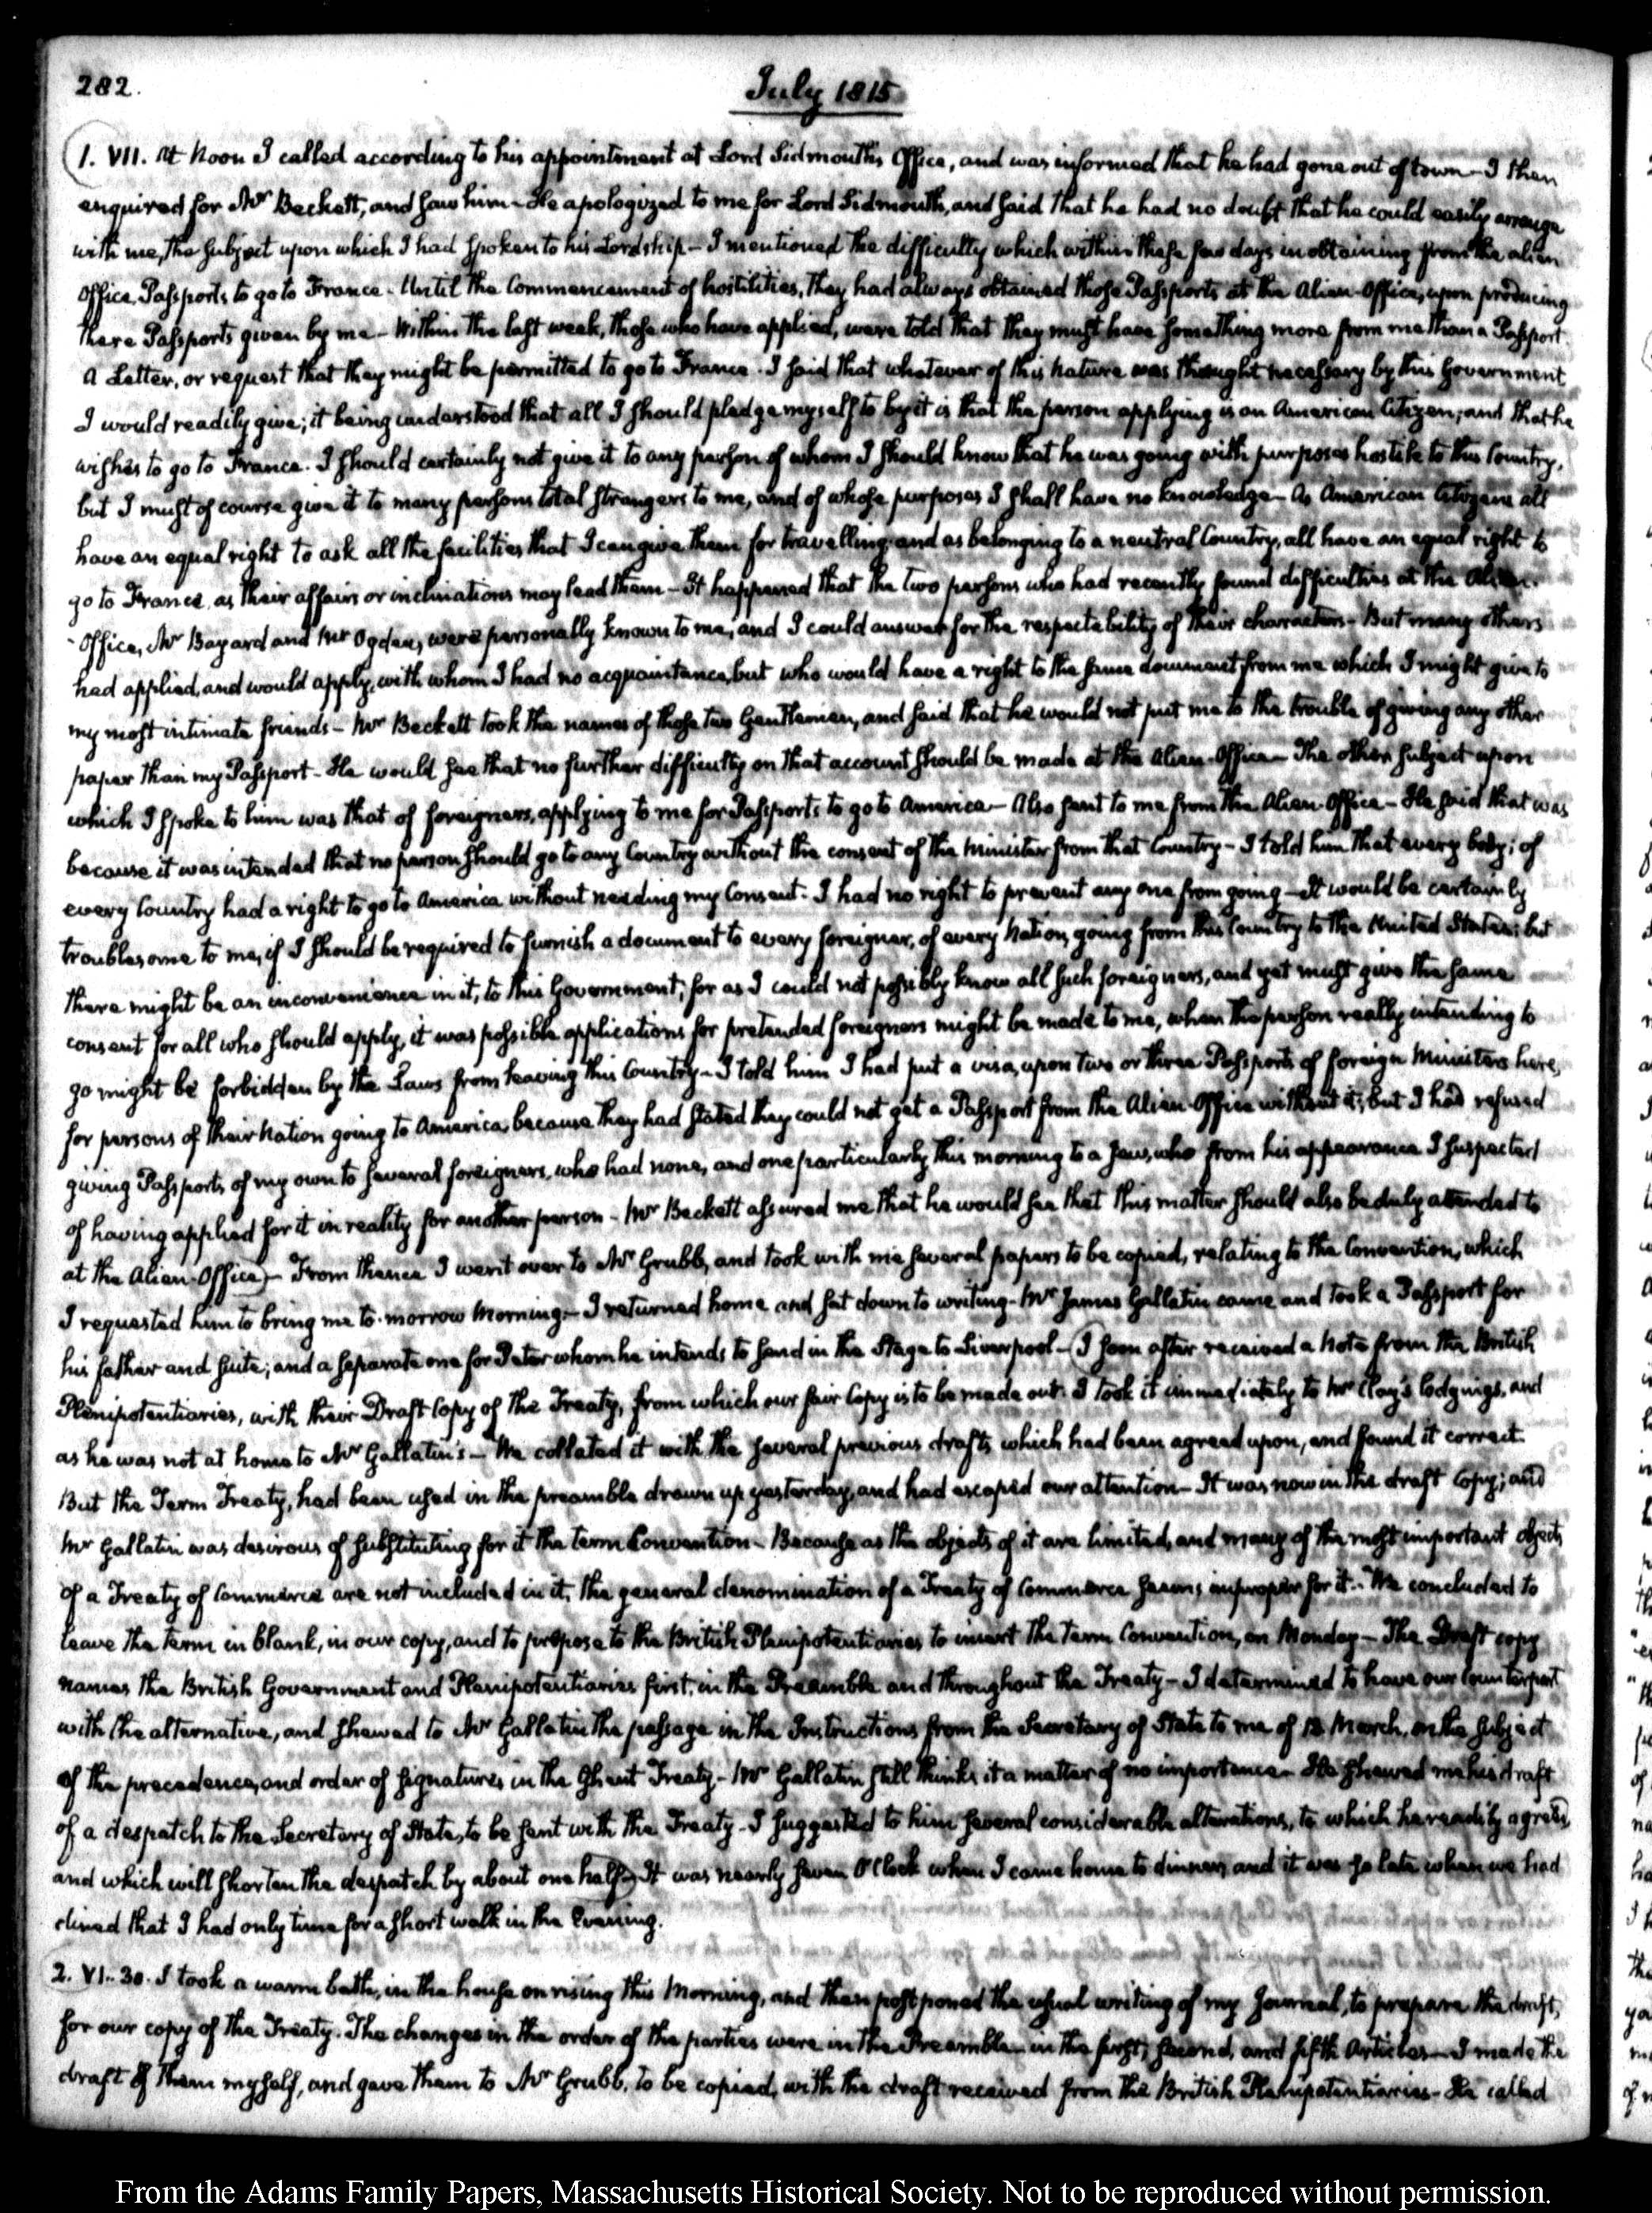 282.
July 1815
1. VII. At Noon I called according to his appointment at Lord Sidmouth's Office, and was informed that he had gone out of town — I then
enquired for Mr Beckett, and saw him — He apologized to me for Lord Sidmouth, and said that he had no doubt that he could easily arrange
with me, the subject upon which I had spoken to his Lordship — I mentioned the difficulty which within these few days in obtaining from the alien
Office, Passports to go to France. Until the Commencement of hostilities, they had always obtained those Passports at the Alien-Office, upon producing
there Passports given by me — Within the last week, those who have applied, were told that they must have something more from me than a Passport.
A Letter, or request that they might be permitted to go to France. I said that whatever of this nature was thought necessary by this Government
I would readily give; it being understood that all I should pledge myself to by it is that the person applying is an American Citizen, and that he
wishes to go to France. I should certainly not give it to any person of whom I should know that he was going with purposes hostile to this Country,
but I must of course give it to many persons total strangers to me, and of whose purposes I shall have no knowledge — As American Citizens all
have an equal right to ask all the facilities that I can give them for travelling and as belonging to a neutral Country, all have an equal right to
go to France, as their affairs or inclinations may lead them — It happened that the two persons who had recently found difficulties at the Alien-
Office, Mr Bayard and Mr Ogden, were personally known to me, and I could answer for the respectability of their characters — But many others
had applied, and would apply, with whom I had no acquaintance, but who would have a right to the same document from me which I might give to
my most intimate friends — Mr Beckett took the names of those two Gentlemen, and said that he would not put me to the trouble of giving any other
paper than my Passport — He would see that no further difficulty on that account should be made at the Alien-Office — The other subject upon
which I spoke to him was that of foreigners, applying to me for Passports to go to America — Also sent to me from the Alien-Office — He said that was
because it was intended that no person should go to any Country without the consent of the Minister from that Country — I told him that every body; of
every Country had a right to go to America without needing my Consent. I had no right to prevent any one from going — It would be certainly
troublesome to me, if I should be required to furnish a document to every foreigner, of every Nation, going from this Country to the United States; but
there might be an inconvenience in it, to this Government; for as I could not possibly know all such foreigners, and yet must give the same
consent for all who should apply, it was possible applications for pretended foreigners might be made to me, when the person really intending to
go might be forbidden by the Laws from leaving this Country — I told him I had put a visa, upon two or three Passports of foreign Ministers here,
for persons of their Nation going to America, because they had stated they could not get a Passport from the Alien-Office without it; but I had refused
giving Passports of my own to several foreigners, who had none, and one particularly this morning to a Jew, who from his appearance I suspected
of having applied for it in reality for another person — Mr Beckett assured me that he would see that this matter should also be duly attended to
at the Alien-Office) — From thence I went over to Mr Grubb, and took with me several papers to be copied, relating to the Convention, which
I requested him to bring me to-morrow Morning — I returned home and sat down to writing — Mr James Gallatin came and took a Passport for
his father and suite; and a separate one for Peter whom he intends to send in the Stage to Liverpool — (I soon after received a Note from the British
Plenipotentiaries, with their Draft Copy of the Treaty, from which our fair Copy is to be made out. I took it immediately to Mr Clay's lodgings, and
as he was not at home to Mr Gallatin's — We collated it with the several previous drafts which had been agreed upon, and found it correct.
But the Term Treaty, had been used in the preamble drawn up yesterday, and had escaped our attention — It was now in the draft Copy; and
Mr Gallatin was desirous of substituting for it the term Convention — Because as the objects of it are limited, and many of the most important objects
of a Treaty of Commerce are not included in it, the general denomination of a Treaty of Commerce seems improper for it. We concluded to
leave the term in blank, in our copy, and to propose to the British Plenipotentiaries to insert the term Convention, on Monday — The Draft copy
names the British Government and Plenipotentiaries first, in the Preamble and throughout the Treaty — I determined to have our Counterpart
with the alternative, and shewed to Mr Gallatin the passage in the Instructions from the Secretary of State to me of 13 March, on the subject
of the precedence, and order of signatures in the Ghent Treaty — Mr Gallatin still thinks it a matter of no importance — He shewed me his draft
of a despatch to the Secretary of State, to be sent with the Treaty — I suggested to him several considerable alterations, to which he readily agreed,
and which will shorten the despatch by about one half) — It was nearly seven O'Clock when I came home to dinner, and it was so late when we had
dined that I had only time for a short walk in the Evening.
2. VI.30. I took a warm bath, in the house on rising this Morning, and then postponed the usual writing of my Journal, to prepare the draft,
for our copy of the Treaty. The changes in the order of the parties were in the Preamble — in the first, second, and fifth Articles — I made the
draft of them myself, and gave them to Mr Grubb, to be copied, with the draft received from the British Plenipotentiaries — He called
From the Adams Family Papers, Massachusetts Historical Society. Not to be reproduced without permission.